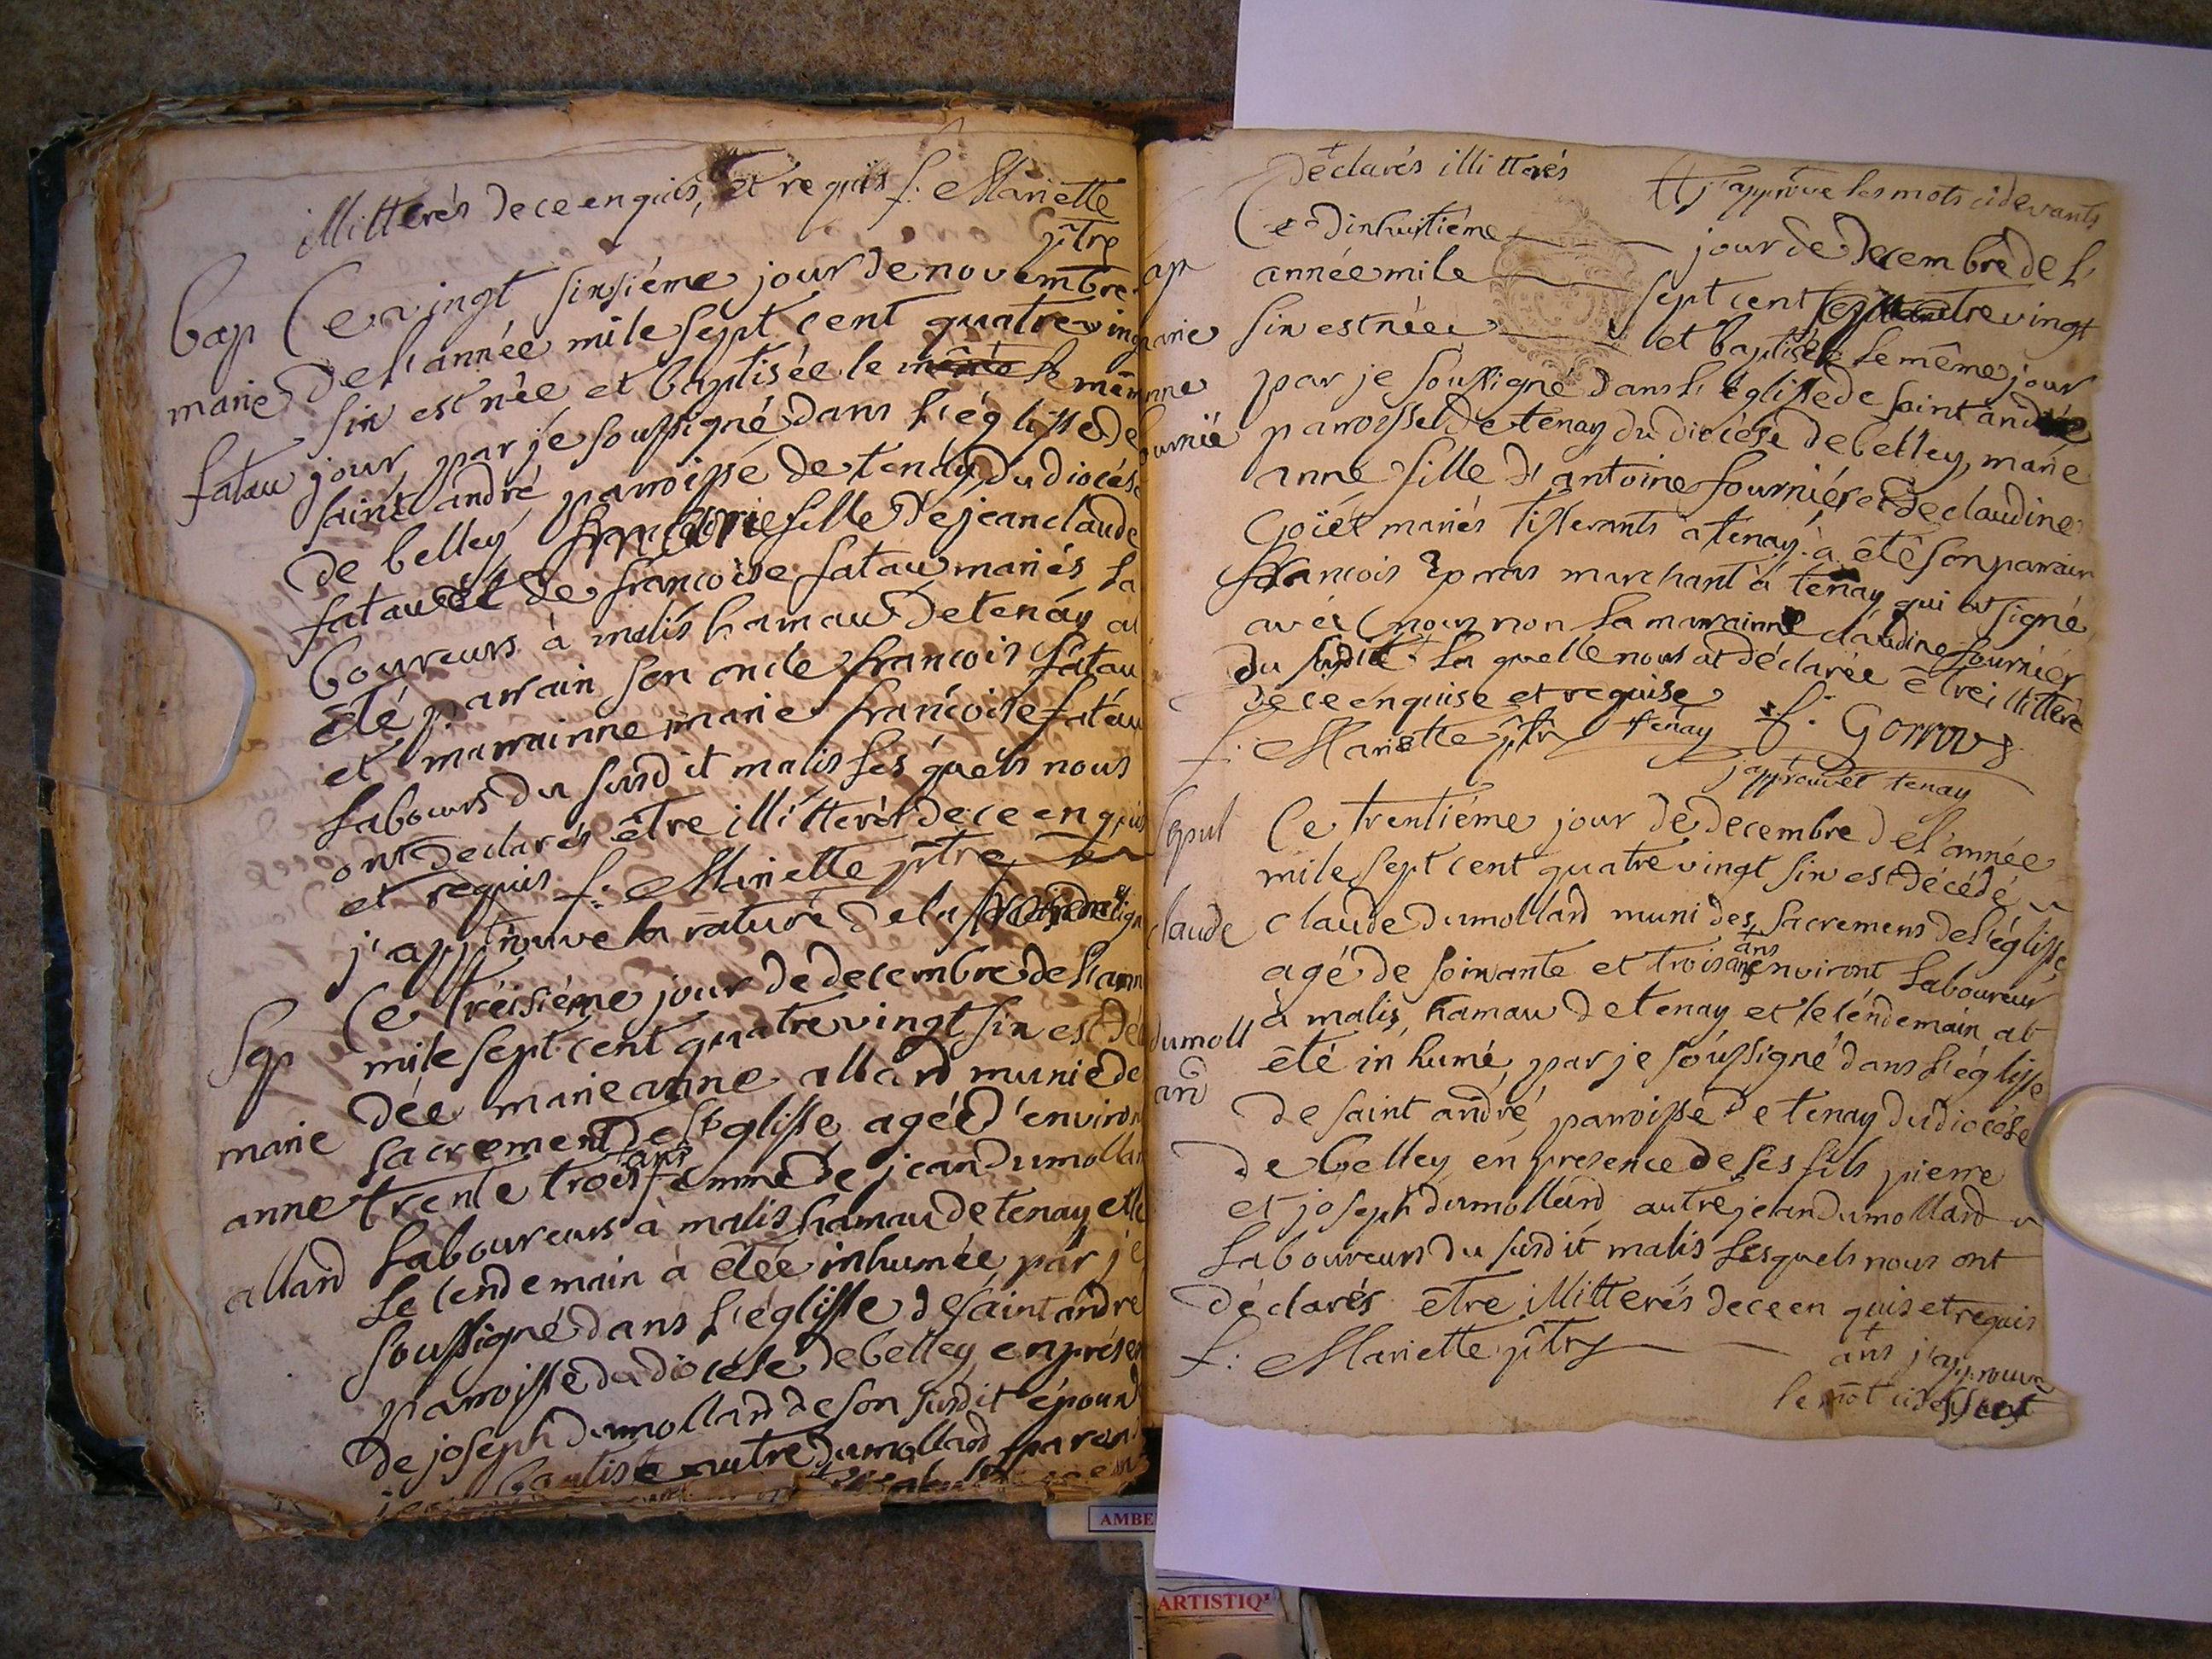 illitterés de ce enquis, et requis f: Mariette
ptre
bap Ce vingt sixsiéme jour de novembre
marie de l'année mile sept cent quatre vin
fatau six est née et baptisée le même le mêm
jour par je soussigné dans l'églisse de
saint andré parroisse de tenay du diocése
de belley fille de jean claude
fatau et de francoise fatau mariés la
boureurs à malis hamau de tenay at
été parrain son oncle francois fatau
et marrainne marie francoise fatau
labours du surdit malis lesquels nous
ont declarés être illitterés de ce enquis
et requis f: Mariette ptre
j'approuve la rature de la ligne
Sep Ce tréisiéme jour de decembre de l'ann
mile sept cent quatre vingt six est décé
dée marie anne allard munie de
marie sacrement de l'églisse agée d'environ
anne trente trois ans femme de jean dumollar
allard laboureurs à malis hamau de tenay et
le lendemain à étée inhumée par je
soussigné dans l'églisse de saint andre
parroisse du diocése de belley en présen
de joseph dumollard de son surdit époux
baptiste autre dumollard
déclarés illitterés
et j'approuve les mots cidevants
bap Ce dixhuitiéme jour de decembre de l'
année mile sept cent quatre vingt
marie six est née et baptisée le même jour
anne par je soussigné dans l'églisse de saint andré
fournié parroisse de tenay du diocése de belley, marie
anne fille d'antoine fourniér et de claudine
Goiét mariés tisserants à tenay. à été son parrain
francois marchant à tenay qui at signé
avéc nous non la marrainne claudine fourniér
du sudit la quelle nous at déclarée être illitteré
de ce enquise et requise
f: Mariette ptre tenay f. Gorrox
j'approuvét tenay
Sepul Ce trentiéme jour de decembre de l'année
mile sept cent quatre vingt six est décédé
claude claude dumollard muni des sacremens de l'églisse
agé de soixante et trois ans environt laboureur
dumoll à malis, hamau de tenay et le léndemain at
ard été inhumé par je soussigné dans l'églisse
de saint andré parroisse de tenay du diocése
de belley en presence de ses fils pierre
et joseph dumollard autre jean dumollard
laboureurs du surdit malis lesquels nous ont
déclarés être illitterés de ce enquis et requis
f: Mariette ptre
ans j'approuve
le mot cidessus
AMBE
ARTISTIQ